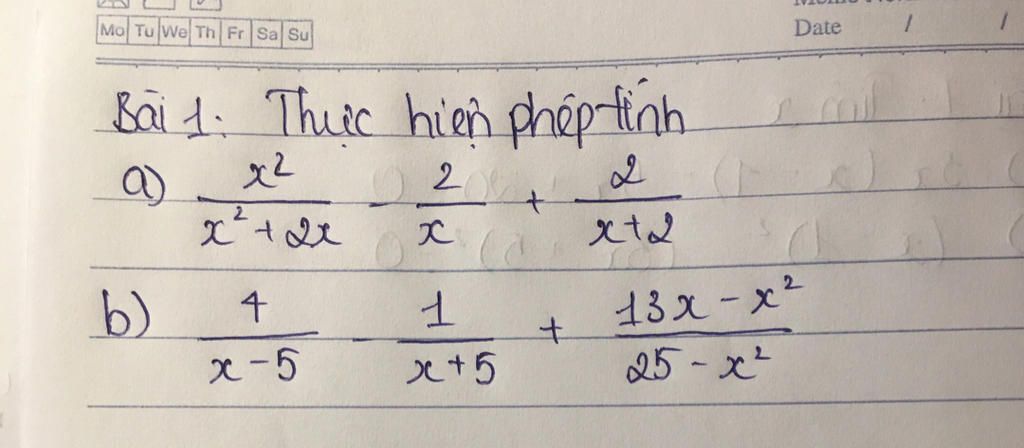 Mo Tu We Th Fr Sa Su
Date / /
Bài 1: Thực hiện phép tính
a) x²/(x²+2x) - 2/x + 2/(x+2)
b) 4/(x-5) - 1/(x+5) + (13x-x²)/(25-x²)